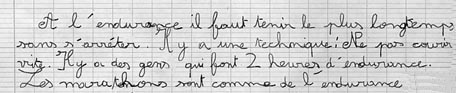 A l'endurance il faut tenir le plus longtemps
sans s'arrêter. Il y a une technique: Ne pas courir
vite. Il y a des gens qui font 2 heures d'endurance.
Les marathons sont comme de l'endurance